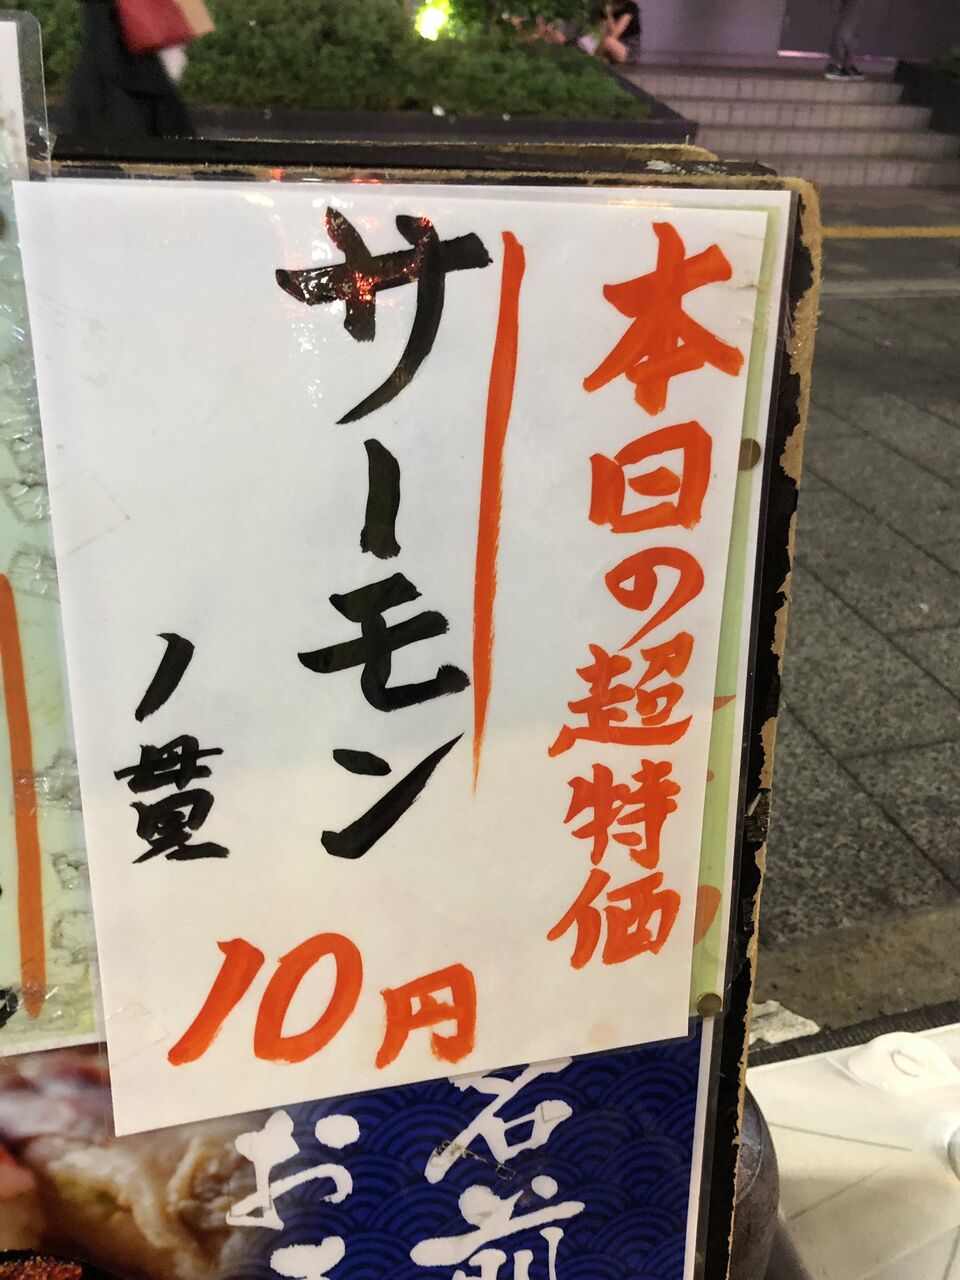 本日の超特価
サーモン
1貫
10円
名前
お